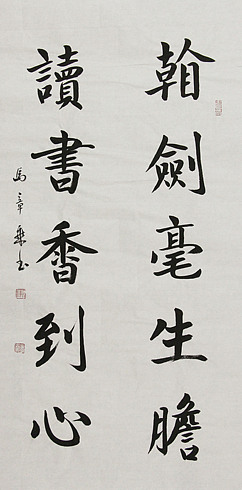 翰劍毫生膽
讀書香到心
馬章乘書